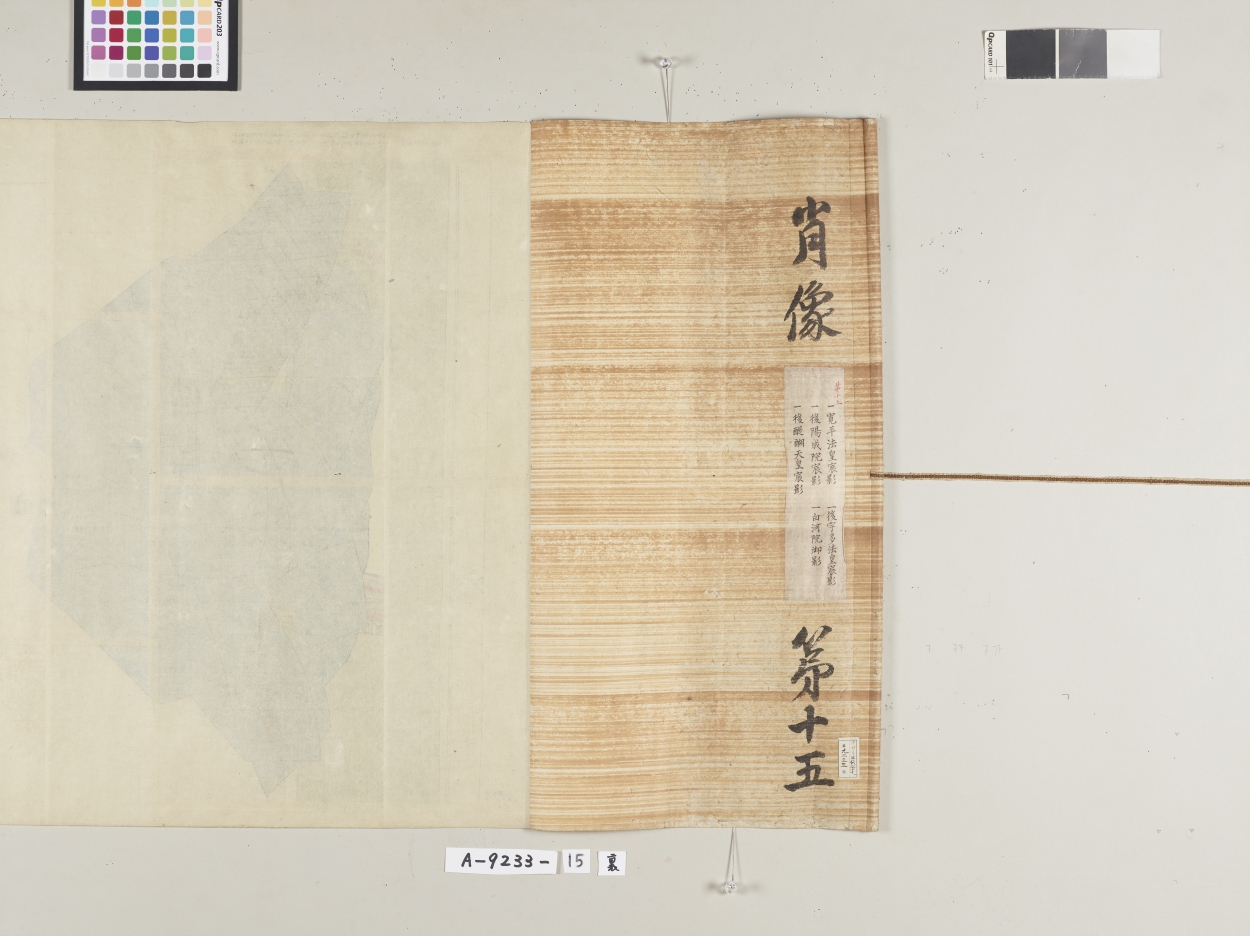 肖像
第十五
一寛平法皇宸影
一後陽成院宸影
一後醍醐天皇宸影
一後宇多法皇宸影
一白河院御影
第十五
A-9233-15 裏
QPCARD 203
QPCARD 101